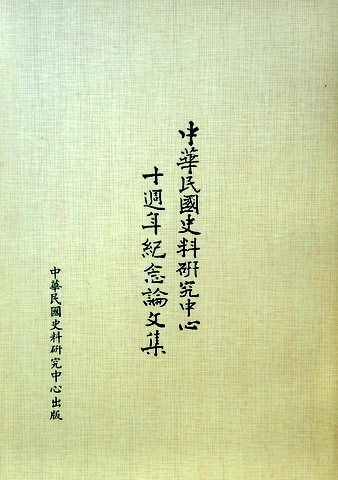 中華民國史料研究中心
十週年紀念論文集
中華民國史料研究中心出版